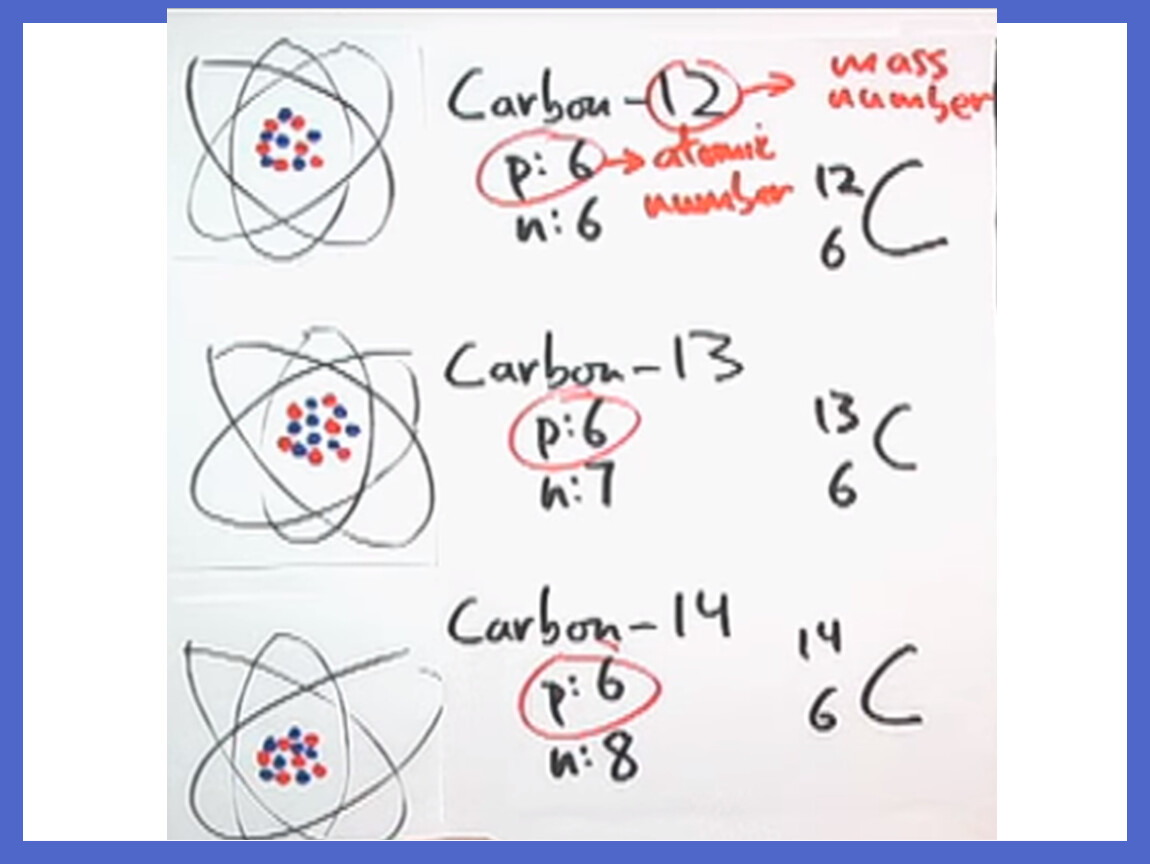 Carbon-12 → mass number
p: 6 → atomic number
n: 6
12
6 C
Carbon-13
p: 6
n: 7
13
6 C
Carbon-14
p: 6
n: 8
14
6 C